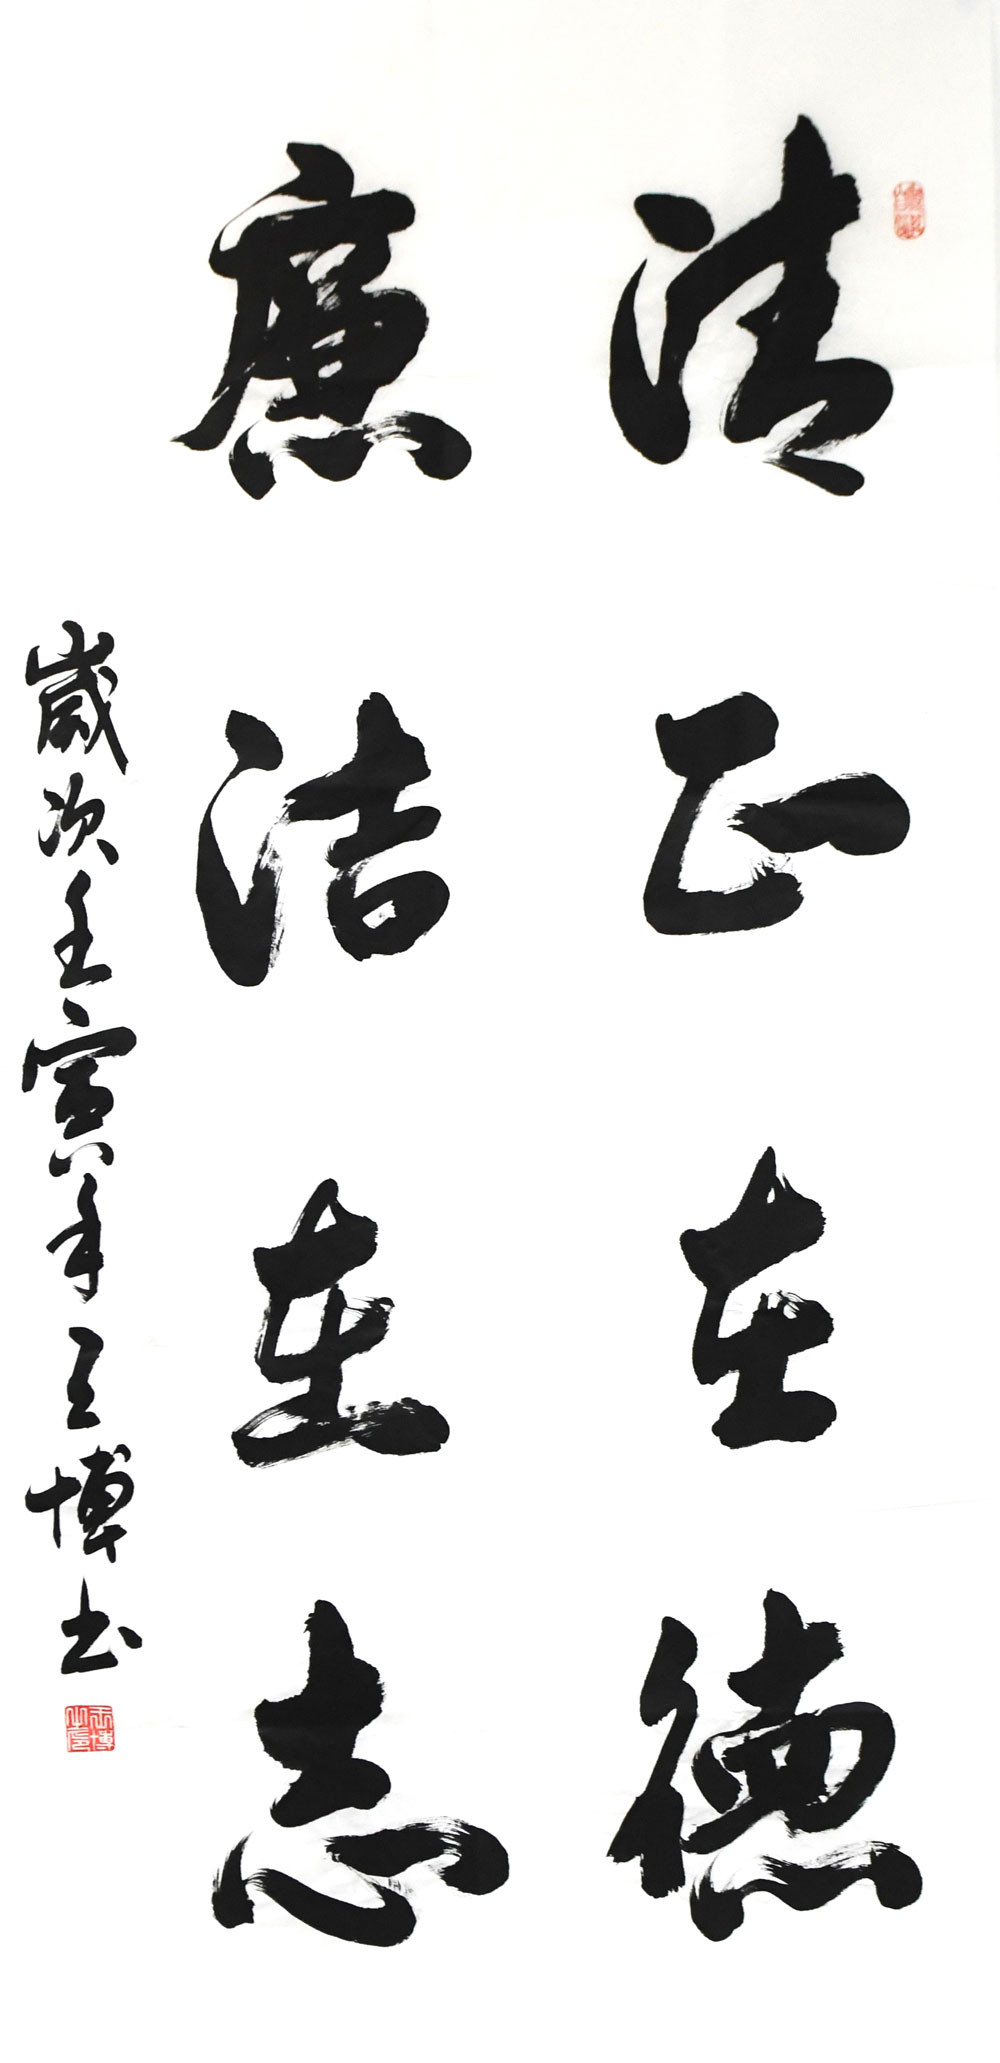 清正在德
廉洁在志
歲次壬寅年王博书